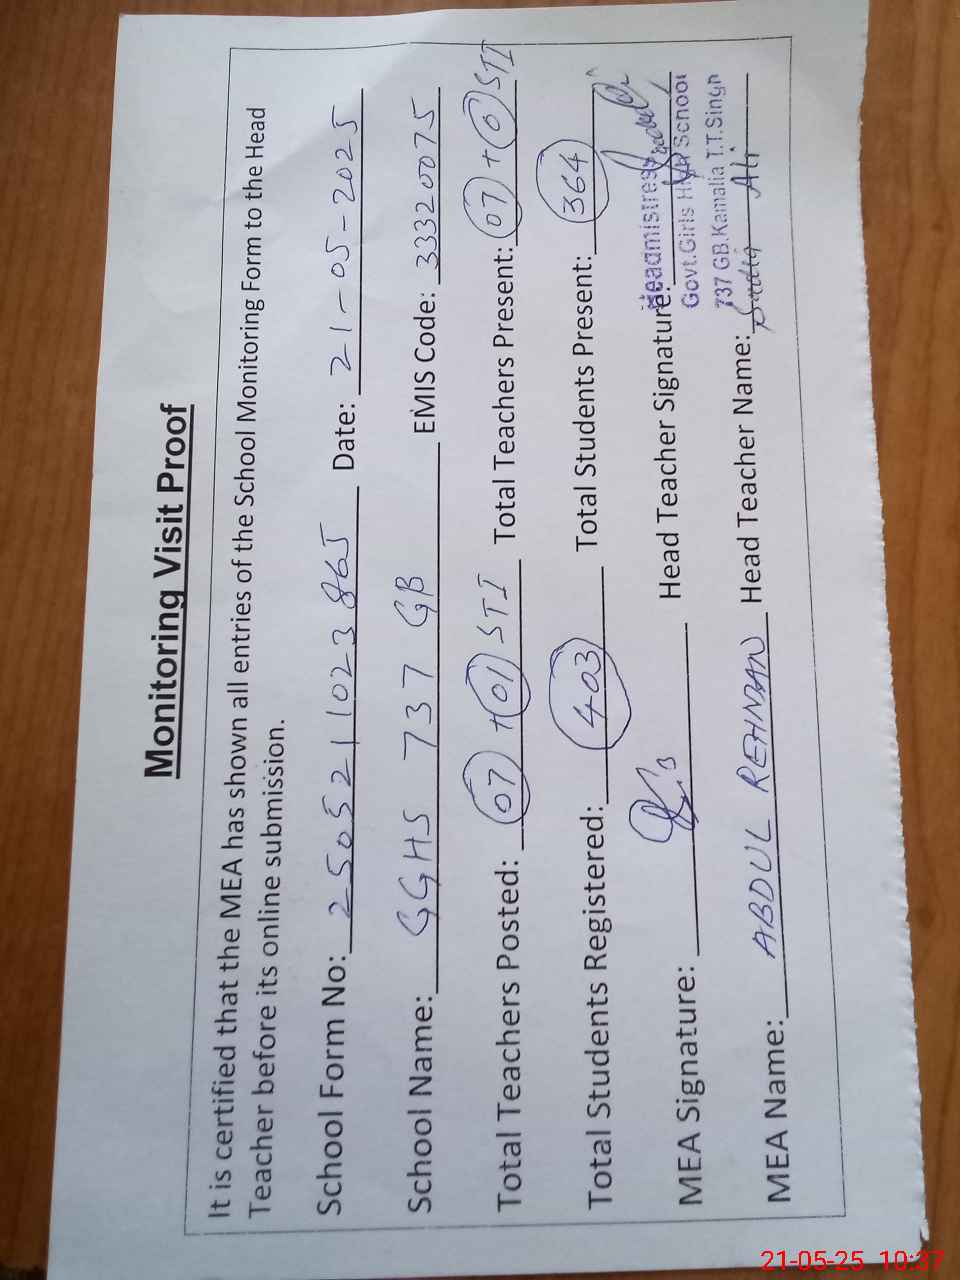 Monitoring Visit Proof
It is certified that the MEA has shown all entries of the School Monitoring Form to the Head
Teacher before its online submission.
School Form No: 250521 1023 865 Date: 21-05-2025
School Name: GGHS 737 GB EMIS Code: 33320075
Total Teachers Posted: 07 + 01 STI Total Teachers Present: 07 + 01 STI
Total Students Registered: 403 Total Students Present: 364
MEA Signature: Head Teacher Signature:
Headmistress
Govt.Girls High School
737 GB.Kamalia T.T.Singh
MEA Name: ABDUL REHMAN Head Teacher Name: Sadia Ali
21-05-25 10:37